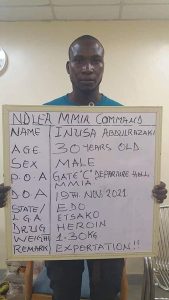 NDLEA MMIA COMMAND
NAME INUSA ABDULRAZAKI
AGE 30 YEARS OLD.
SEX MALE
P.O.A GATE "C" DEPARTURE HALL MMIA
D.O.A 19TH NOV. 2021
STATE/ EDO
LGA ETSAKO
DRUG HEROIN
WEIGHT 1.30KG
REMARK EXPORTATION!!